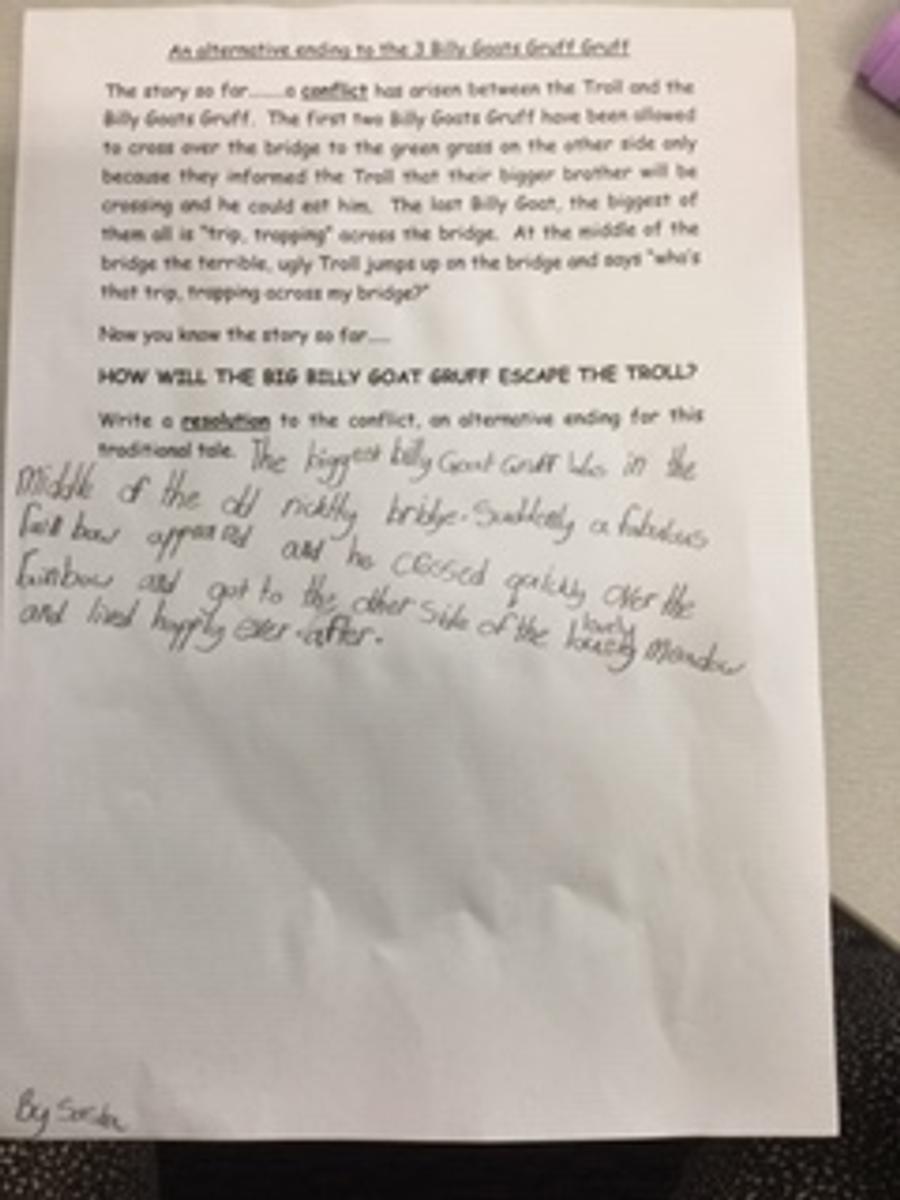 An alternative ending to the 3 Billy Goats Gruff Gruff
The story so far.......a conflict has arisen between the Troll and the
Billy Goats Gruff. The first two Billy Goats Gruff have been allowed
to cross over the bridge to the green grass on the other side only
because they informed the Troll that their bigger brother will be
crossing and he could eat him. The last Billy Goat, the biggest of
them all is "trip, trapping" across the bridge. At the middle of the
bridge the terrible, ugly Troll jumps up on the bridge and says "who's
that trip, trapping across my bridge?"
Now you know the story so far.....
HOW WILL THE BIG BILLY GOAT GRUFF ESCAPE THE TROLL?
Write a resolution to the conflict, an alternative ending for this
traditional tale. The biggest billy Goat Gruff was in the
Middle of the old ricktty bridge. Suddenly a fabulous
rain bow appeared and he crossed quickly over the
rainbow and got to the other side of the lovely meadow
and lived happly ever-after.
By